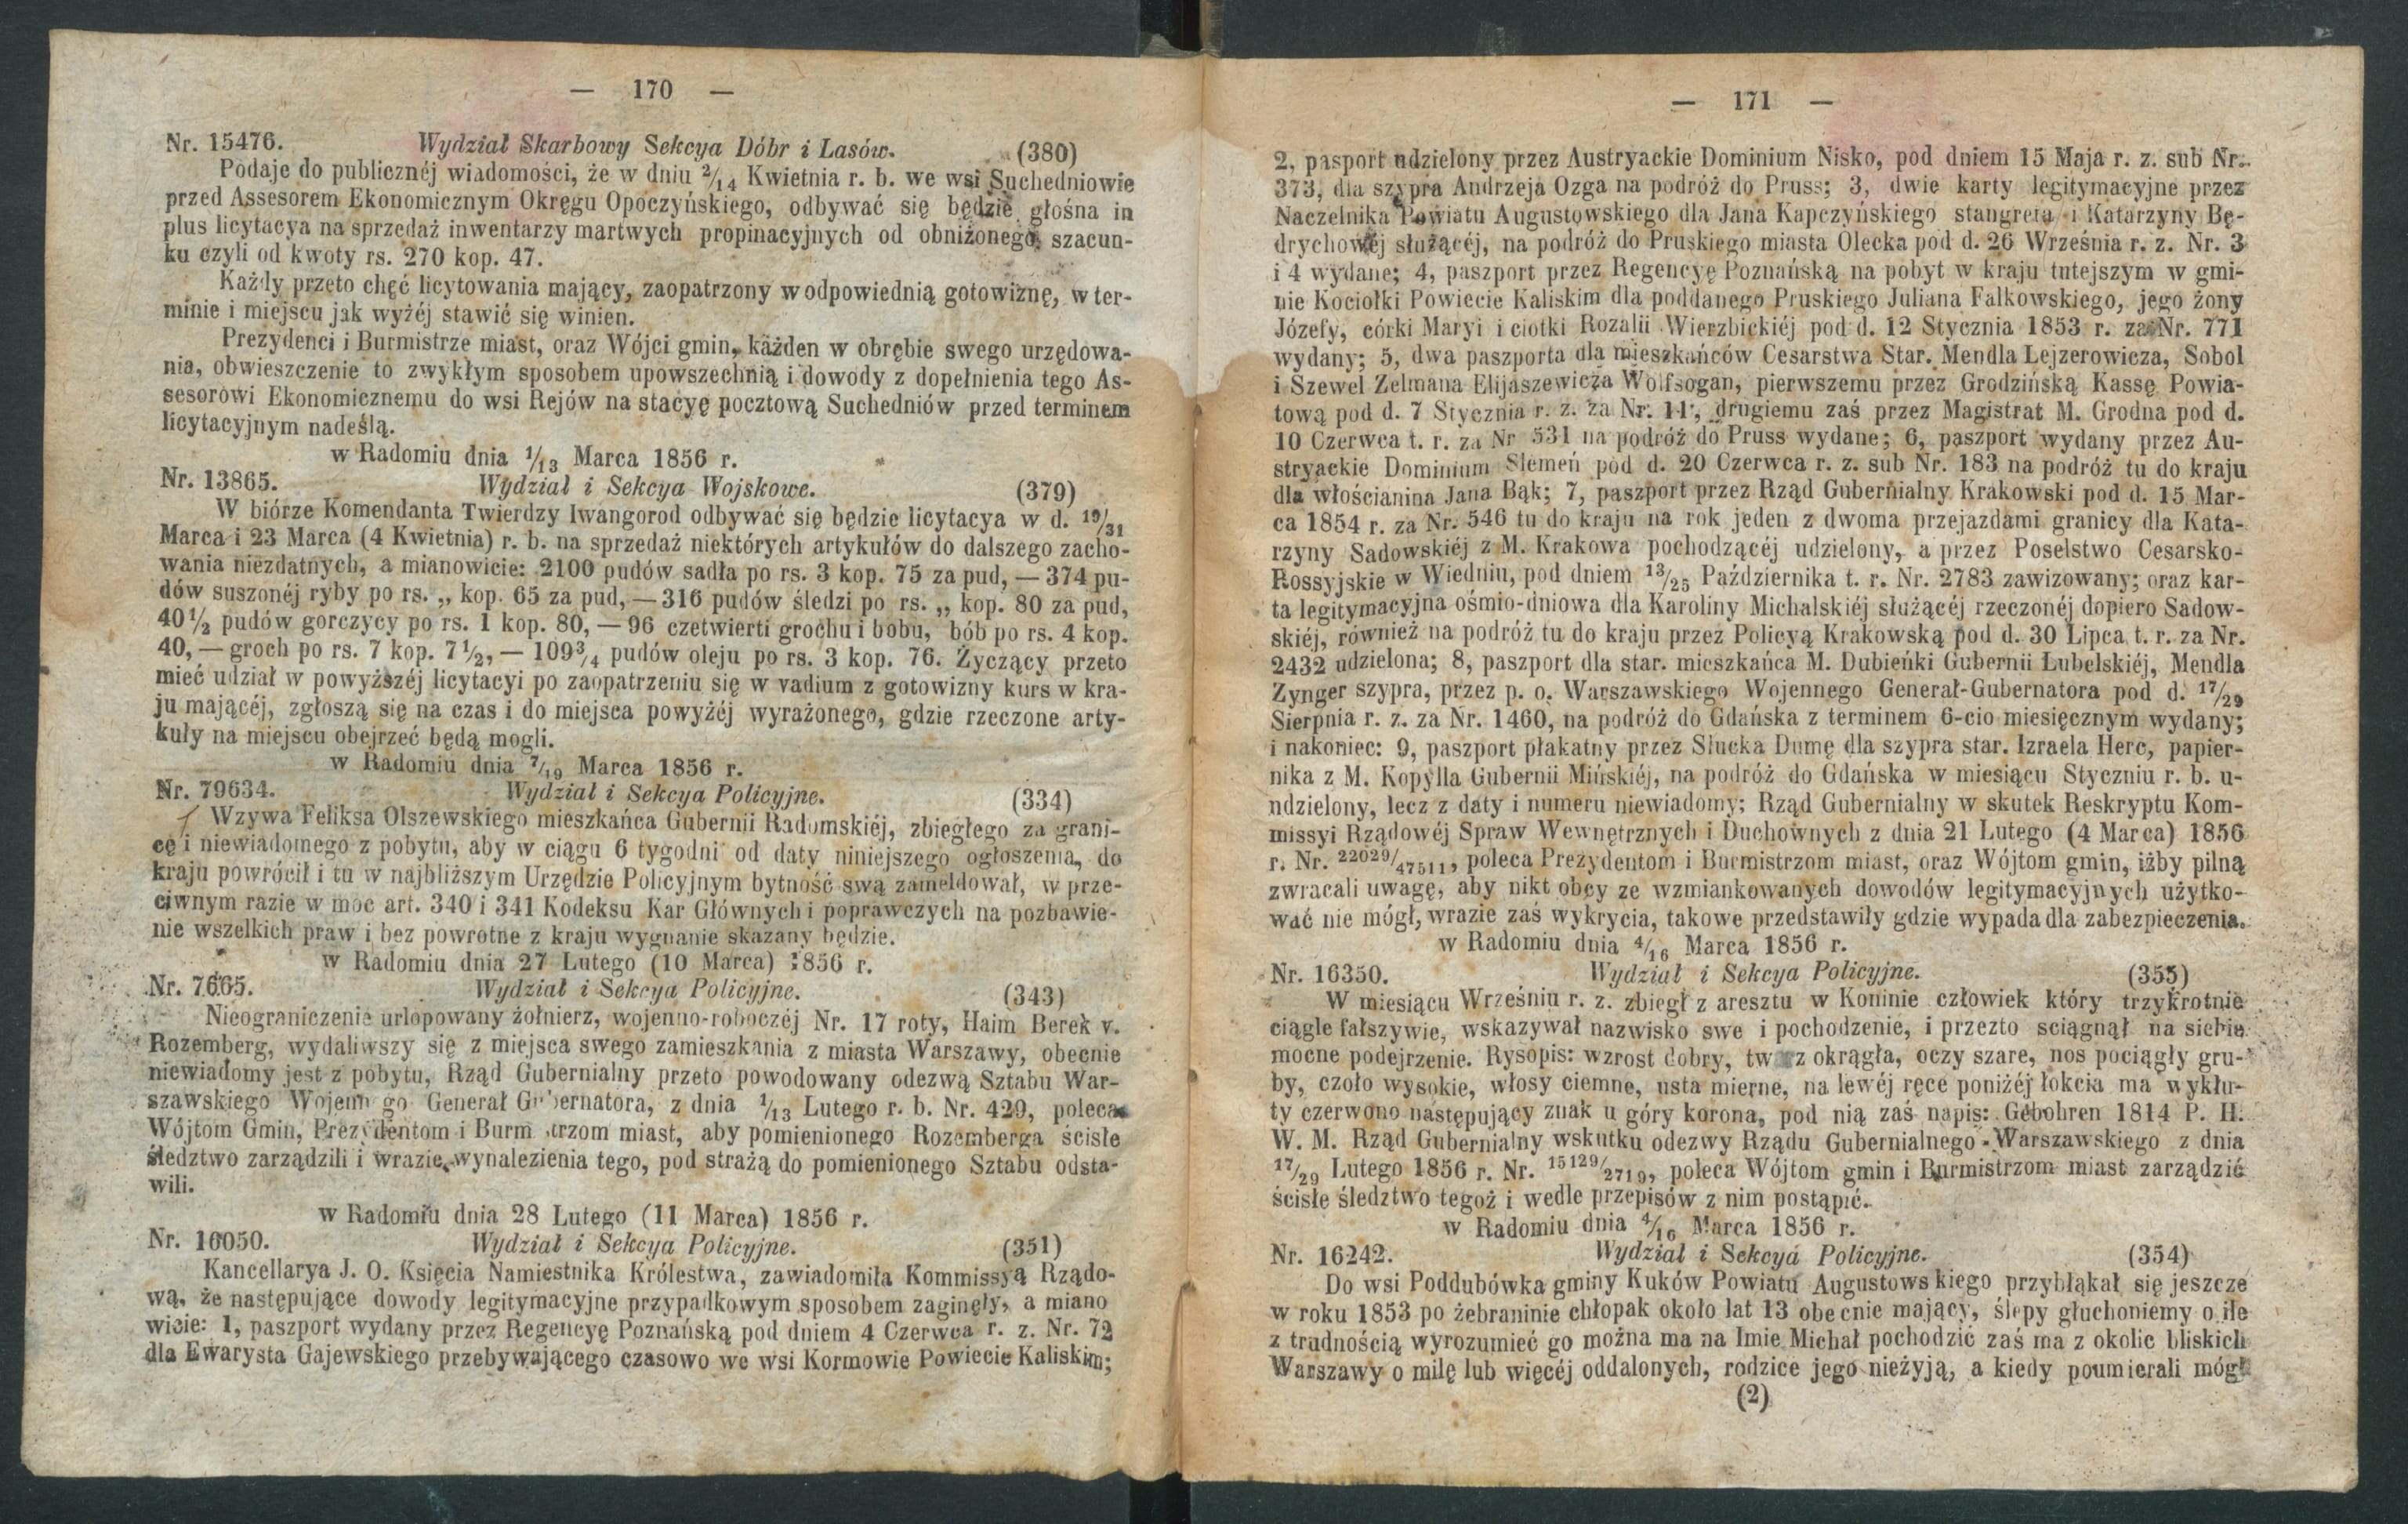 — 170 —
Nr. 15476. Wydział Skarbowy Sekcya Dóbr i Lasów. (380)
Podaje do publicznéj wiadomości, że w dniu 2/14 Kwietnia r. b. we wsi Suchedniowie
przed Assesorem Ekonomicznym Okręgu Opoczyńskiego, odbywać się będzie głośna in
plus licytacya na sprzedaż inwentarzy martwych propinacyjnych od obniżonego szacun-
ku czyli od kwoty rs. 270 kop. 47.
Każdy przeto chęć licytowania mający, zaopatrzony w odpowiednią gotowiznę, w ter-
minie i miejscu jak wyżéj stawić się winien.
Prezydenci i Burmistrze miast, oraz Wójci gmin, każden w obrębie swego urzędowa-
nia, obwieszczenie to zwykłym sposobem upowszechnią i dowody z dopełnienia tego As-
sesorowi Ekonomicznemu do wsi Rejów na stacyę pocztową Suchedniów przed terminem
licytacyjnym nadeślą.
w Radomiu dnia 1/13 Marca 1856 r.
Nr. 13865. Wydział i Sekcya Wojskowe. (379)
W biórze Komendanta Twierdzy Iwangorod odbywać się będzie licytacya w d. 19/31
Marca i 23 Marca (4 Kwietnia) r. b. na sprzedaż niektórych artykułów do dalszego zacho-
wania niezdatnych, a mianowicie: 2100 pudów sadła po rs. 3 kop. 75 za pud, — 374 pu-
dów suszonéj ryby po rs. „ kop. 65 za pud, — 316 pudów śledzi po rs. „ kop. 80 za pud,
40½ pudów gorczycy po rs. 1 kop. 80, — 96 czetwierti grochu i bobu, bób po rs. 4 kop.
40, — groch po rs. 7 kop. 7½, — 109¾ pudów oleju po rs. 3 kop. 76. Życzący przeto
mieć udział w powyższéj licytacyi po zaopatrzeniu się w vadium z gotowizny kurs w kra-
ju mającéj, zgłoszą się na czas i do miejsca powyżéj wyrażonego, gdzie rzeczone arty-
kuły na miejscu obejrzeć będą mogli.
w Radomiu dnia 7/19 Marca 1856 r.
Nr. 79634. Wydział i Sekcya Policyjne. (334)
Wzywa Feliksa Olszewskiego mieszkańca Gubernii Radomskiéj, zbiegłego za grani-
cę i niewiadomego z pobytu, aby w ciągu 6 tygodni od daty niniejszego ogłoszenia, do
kraju powrócił i tu w najbliższym Urzędzie Policyjnym bytność swą zameldował, w prze-
ciwnym razie w moc art. 340 i 341 Kodeksu Kar Głównych i poprawczych na pozbawie-
nie wszelkich praw i bez powrotne z kraju wygnanie skazany będzie.
w Radomiu dnia 27 Lutego (10 Marca) 1856 r.
Nr. 7665. Wydział i Sekcya Policyjne. (343)
Nieograniczenie urlopowany żołnierz, wojenno-roboczéj Nr. 17 roty, Haim Berek v.
Rozemberg, wydaliwszy się z miejsca swego zamieszkania z miasta Warszawy, obecnie
niewiadomy jest z pobytu, Rząd Gubernialny przeto powodowany odezwą Sztabu War-
szawskiego Wojennego Generał Gubernatora, z dnia 1/13 Lutego r. b. Nr. 429, poleca
Wójtom Gmin, Prezydentom i Burmistrzom miast, aby pomienionego Rozemberga ścisłe
śledztwo zarządzili i wrazie wynalezienia tego, pod strażą do pomienionego Sztabu odsta-
wili.
w Radomiu dnia 28 Lutego (11 Marca) 1856 r.
Nr. 16050. Wydział i Sekcya Policyjne. (351)
Kancellarya J. O. Księcia Namiestnika Królestwa, zawiadomiła Kommissyą Rządo-
wą, że następujące dowody legitymacyjne przypadkowym sposobem zaginęły, a miano
wicie: 1, paszport wydany przez Regencyę Poznańską pod dniem 4 Czerwca r. z. Nr. 72
dla Ewarysta Gajewskiego przebywającego czasowo we wsi Kormowie Powiecie Kaliskim;
— 171 —
2, pasport udzielony przez Austryackie Dominium Nisko, pod dniem 15 Maja r. z. sub Nr.
373, dla szypra Andrzeja Ozga na podróż do Pruss; 3, dwie karty legitymacyjne przez
Naczelnika Powiatu Augustowskiego dla Jana Kapczyńskiego stangreta i Katarzyny Bę-
drychowéj służącéj, na podróż do Pruskiego miasta Olecka pod d. 26 Września r. z. Nr. 3
i 4 wydane; 4, paszport przez Regencyę Poznańską na pobyt w kraju tutejszym w gmi-
nie Kociołki Powiecie Kaliskim dla poddanego Pruskiego Juliana Falkowskiego, jego żony
Józefy, córki Maryi i ciotki Rozalii Wierzbickiéj pod d. 12 Stycznia 1853 r. za Nr. 771
wydany; 5, dwa paszporta dla mieszkańców Cesarstwa Star. Mendla Lejzerowicza, Sobol
i Szewel Zelmana Elijaszewicza Wolfsogan, pierwszemu przez Grodzińską Kassę Powia-
tową pod d. 7 Stycznia r. z. za Nr. 11, drugiemu zaś przez Magistrat M. Grodna pod d.
10 Czerwca t. r. za Nr 531 na podróż do Pruss wydane; 6, paszport wydany przez Au-
stryackie Dominium Slemeń pod d. 20 Czerwca r. z. sub Nr. 183 na podróż tu do kraju
dla włościanina Jana Bąk; 7, paszport przez Rząd Gubernialny Krakowski pod d. 15 Mar-
ca 1854 r. za Nr. 546 tu do kraju na rok jeden z dwoma przejazdami granicy dla Kata-
rzyny Sadowskiéj z M. Krakowa pochodzącéj udzielony, a przez Poselstwo Cesarsko-
Rossyjskie w Wiedniu, pod dniem 13/25 Października t. r. Nr. 2783 zawizowany; oraz kar-
ta legitymacyjna ośmio-dniowa dla Karoliny Michalskiéj służącéj rzeczonéj dopiero Sadow-
skiéj, również na podróż tu do kraju przez Policyą Krakowską pod d. 30 Lipca t. r. za Nr.
2432 udzielona; 8, paszport dla star. mieszkańca M. Dubieńki Gubernii Lubelskiéj, Mendla
Zynger szypra, przez p. o. Warszawskiego Wojennego Generał-Gubernatora pod d. 17/29
Sierpnia r. z. za Nr. 1460, na podróż do Gdańska z terminem 6-cio miesięcznym wydany;
i nakoniec: 9, paszport płakatny przez Słucka Dumę dla szypra star. Izraela Herc, papier-
nika z M. Kopylla Gubernii Mińskiéj, na podróż do Gdańska w miesiącu Styczniu r. b. u-
ndzielony, lecz z daty i numeru niewiadomy; Rząd Gubernialny w skutek Reskryptu Kom-
missyi Rządowéj Spraw Wewnętrznych i Duchownych z dnia 21 Lutego (4 Marca) 1856
r. Nr. 22029/47511, poleca Prezydentom i Burmistrzom miast, oraz Wójtom gmin, iżby pilną
zwracali uwagę, aby nikt obcy ze wzmiankowanych dowodów legitymacyjnych użytko-
wać nie mógł, wrazie zaś wykrycia, takowe przedstawiły gdzie wypada dla zabezpieczenia.
w Radomiu dnia 4/16 Marca 1856 r.
Nr. 16350. Wydział i Sekcya Policyjne. (355)
W miesiącu Wrześniu r. z. zbiegł z aresztu w Koninie człowiek który trzykrotnie
ciągle fałszywie, wskazywał nazwisko swe i pochodzenie, i przezto sciągnął na siebie
mocne podejrzenie. Rysopis: wzrost dobry, twarz okrągła, oczy szare, nos pociągły gru-
by, czoło wysokie, włosy ciemne, usta mierne, na lewéj ręce poniżéj łokcia ma wykłu-
ty czerwono następujący znak u góry korona, pod nią zaś napis: Gebohren 1814 P. H.
W. M. Rząd Gubernialny wskutku odezwy Rządu Gubernialnego Warszawskiego z dnia
17/29 Lutego 1856 r. Nr. 15129/2719, poleca Wójtom gmin i Burmistrzom miast zarządzić
ścisłe śledztwo tegoż i wedle przepisów z nim postąpić.
w Radomiu dnia 4/16 Marca 1856 r.
Nr. 16242. Wydział i Sekcya Policyjne. (354)
Do wsi Poddubówka gminy Kuków Powiatu Augustowskiego przybłąkał się jeszcze
w roku 1853 po żebraninie chłopak około lat 13 obecnie mający, ślepy głuchoniemy o ile
z trudnością wyrozumieć go można ma na Imie Michał pochodzić zaś ma z okolic bliskich
Warszawy o milę lub więcéj oddalonych, rodzice jego nieżyją, a kiedy poumierali mógł
(2)